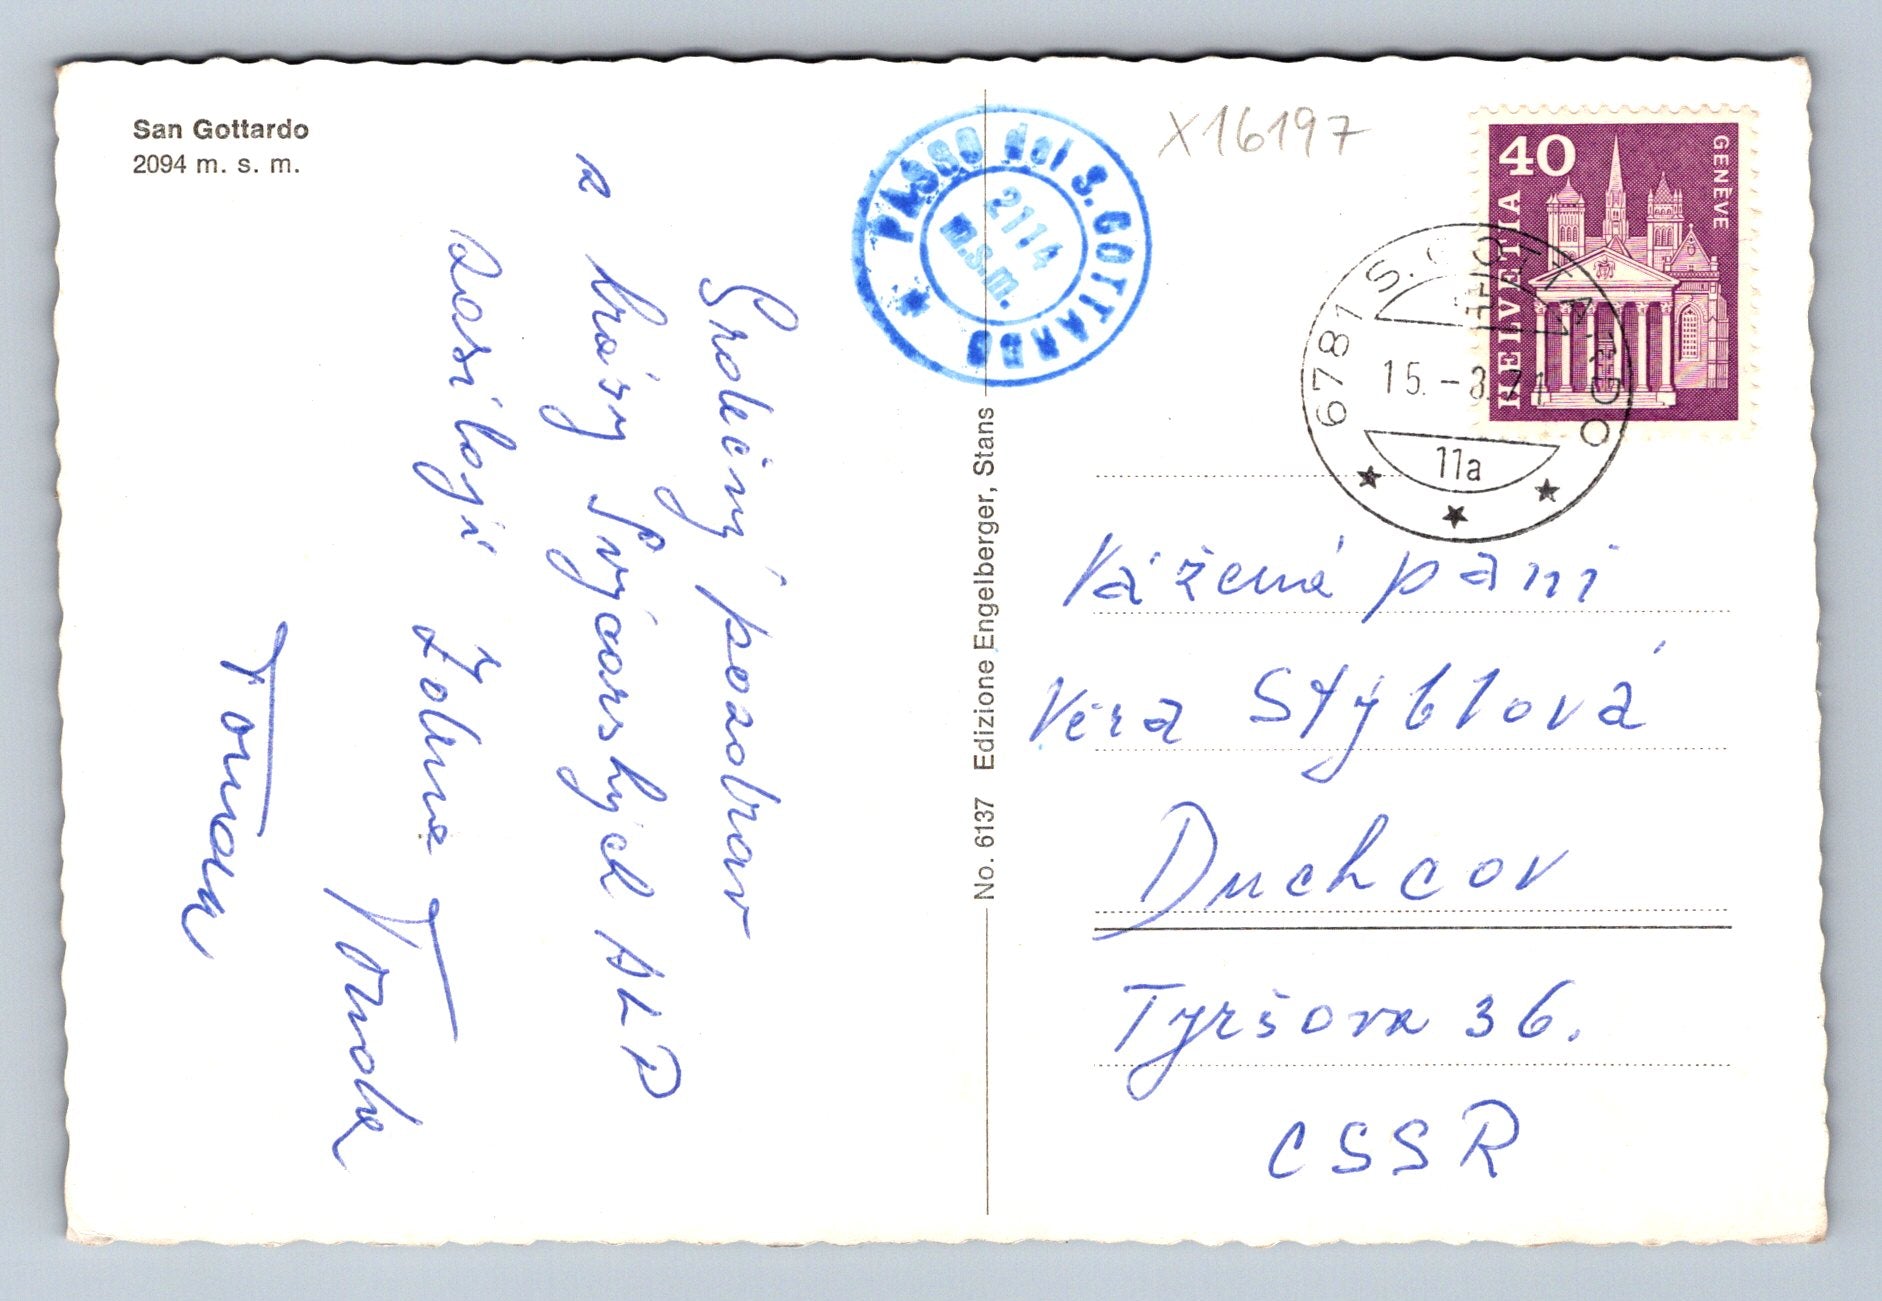 San Gottardo
2094 m. s. m.
Srdečný pozdrav
z krásy Švýcarských ALP
zasílají Zdena
Tonda
Toman
No. 6137 Edizione Engelberger, Stans
PASSO del S. GOTTARDO
2114
m.s.m.
X16197
40
HELVETIA
GENÈVE
6781 S. GOTTARDO
15.-8.71
11a
Vážená paní
Věra Stýblová
Duchcov
Tyršova 36.
CSSR